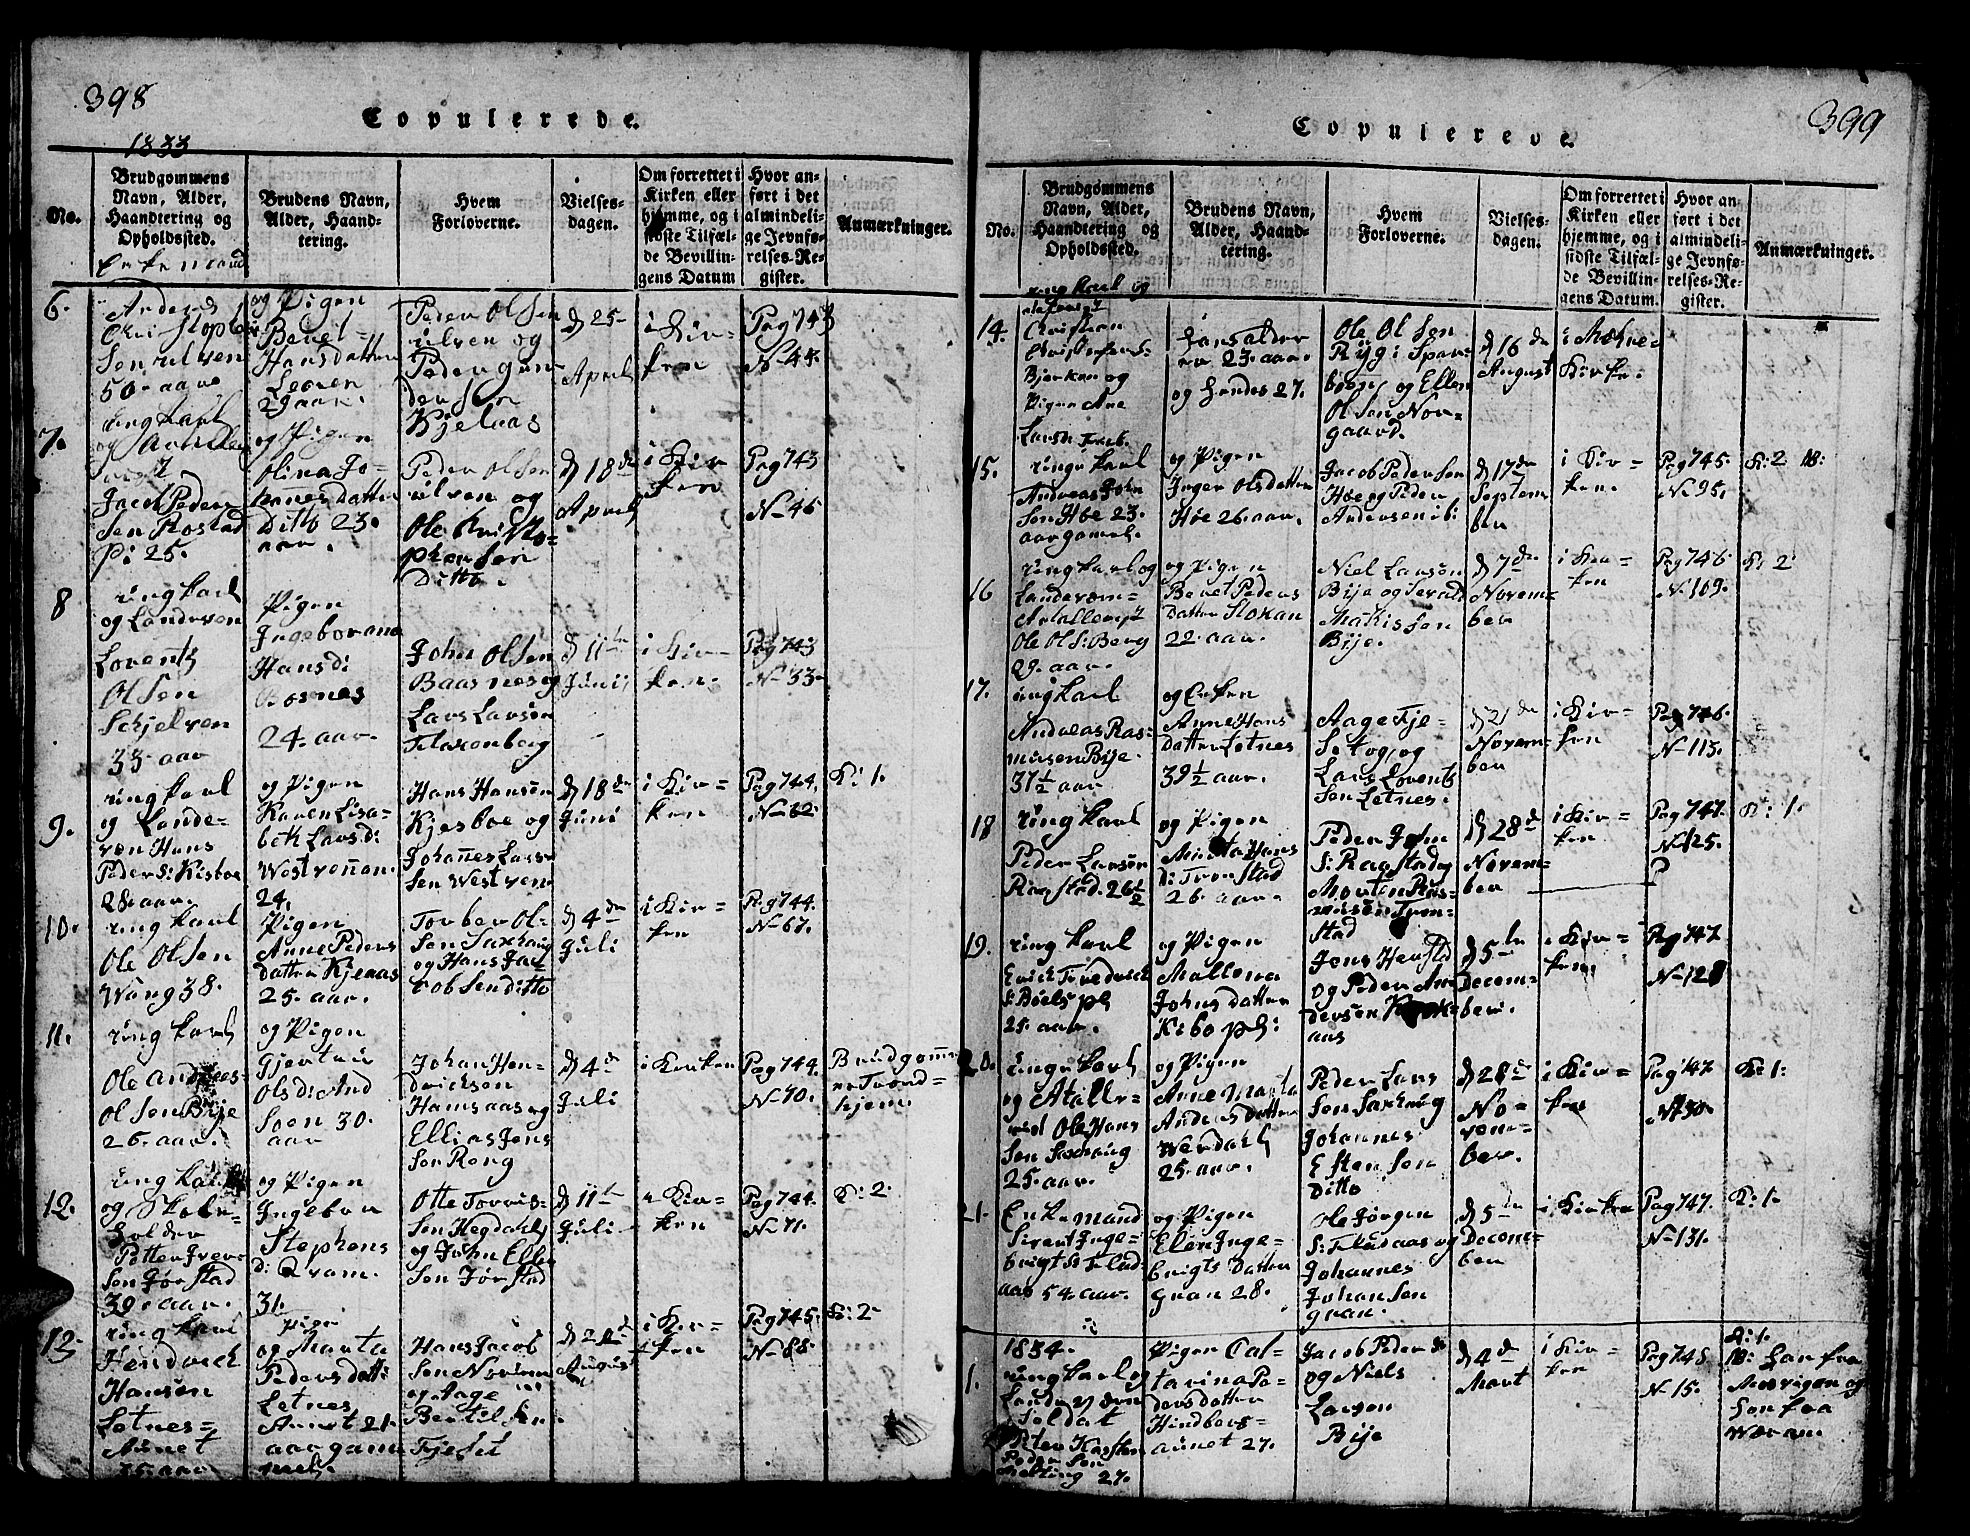 398
Copulerede.
1833
No.
Brudgommens
Navn, Alder,
Haandtering og
Opholdssted.
Brudens Navn,
Alder, Haand-
tering.
Hvem
Forloverne.
Vielses-
dagen.
Om forrettet i
Kirken eller
hjemme, og i
sidste Tilfæl-
de Bevillin-
gens Datum
Hvor an-
ført i det
almindeli-
ge Jevnfø-
relses-Re-
gister.
Anmærkninger.
Enkemand
6.
Anders
Christophe
Sen ulven
50 aare
og Pigen
Beret
Hansdatter
Leeren
29 aar.
Peder Olsen
ulven og
Peder Gun
dersen
Kjelaas
d 25
April
i Kir-
ken
Pag 743
N. 44
7.
ung Karl
og
Jacob Peder
Sen Rostad
Pl 25.
og Pigen
Olina Jo-
hanesdatter
Ditto 23.
aar.
Peder Olsen
ulven og
Ole Kristo-
phersen
Ditto.
d 18de
April
i Kir
ken
Pag 743
N. 46
8
ung Karl
og Landeven
Lorents
Olsen
Schjelven
33 aar
Pigen
Ingeborana
Hansd:
Bosnes
24. aar.
John Olsen
Baasnes og
Lars Larsen
Flaxenberg
d 11te
Junii
i Kir-
ken.
Pag 743
N. 33
9.
ung Karl
og Lande-
ven Hans
Peders: Kisboe
28. aar.
og Pigen
Karen Lisa-
bek Larsd:
Westvennen.
24.
Hans Hansen
Kjesboe og
Johannes Lars
Sen Westven
d 18de
Juni
i Kir=
ken
Pag 744.
N. 62
K: 1.
10.
ung Karl
Ole Olsen
Wang 38.
Pigen
Anne Peders
datter Kjeaas
25. aar.
Torber Ol-
Sen Saxhaug
og Hans Jac-
cob Sen ditto
d 4de
Juli
i Kir=
ken
Pag 744.
N. 67.
11.
ung Karl
Ole Andreas-
Olsen Bije
26. aar.
og Pigen
Gjertrue
Olsd: And
Soon 30.
aar
Johan Hen-
dricksen
Hamsaas og
Ellias Jens
Sen Rong
d 4de
Juli
i Kirken
Pag 744.
N. 70.
Brudgom̅-
er Trond=
hjem.
12.
ung Karl
og Skole=
holder
Petter Iver
Sen Jørstad
39. aar.
og Pigen
Ingebor
Stephens
d: Qvam.
31.
Otte Torris-
Sen Hegdahl
og John Elle
Sen Jørstad
d 11te
Juli
i Kir-
ken
Pag 744.
N. 71.
K: 2
13.
ung Karl
Hendrich
Hansen
Letnes=
Aunet
25 aar
Pige
og Marta
Pedersdatt:
Letnes
Aunet 21
aar gam
mel.
Hans Jacob
Sen Norum
og Aage
Bertilsen
Fjeset
d 22d
August
i Kir=
ken
Pag 745.
N. 88.
K: 2
399
Copulerede.
No.
Brudgommens
Navn, Alder,
Haandtering og
Opholdssted.
Brudens Navn,
Alder, Haand-
tering.
Hvem
Forloverne.
Vielses-
dagen.
Om forrettet i
Kirken eller
hjemme, og i
sidste Tilfæl-
de Bevillin-
gens Datum.
Hvor an
ført i det
almindeli-
ge Jevnfø-
relses-Re-
gister.
Anmærkninger.
14.
ung Karl og
Christian
Christofers-
Bjerken og
Pigen Ane
Larsd:
Hans alder
er 23. aar.
og hendes 27.
Ole Olsen
Ryg i Spar-
boen, og Ellen
Olsen Nor-
gaard.
d 16de
August
i Mærre=
Kirke.
15.
unge Karl
Andreas John
Sen Høe 23.
aar gamel.
og Pigen
Inger Olsdatter
Høe 26. aar.
Jacob Peder Sen
Høe og Peder
Andersen ib:
d 17de
Septem
ber
i Kir=
ken.
Pag 745.
N. 95.
K: 2 18:
16
ung Karl og
Landevern=
Artallerist
Ole Ols: Berg
29. aar.
og Pigen
Beret Peders
Datter Stokan
22. aar.
Niel Larsen
Bije og Serald
Matissen
Bije.
d 7de
Novem-
ber
i Kir-
ken
Pag 746
N. 109.
K: 2
17.
ung Karl
Andreas Ras-
musen Bije.
37½ aar
og Enken
Anne Hans
Datter Letnes
39½ aar.
Aage Fje-
Set og
Lars Lorents
Sen Letnes.
d 21de
Novem-
ber
i Kir-
ken
Pag 746.
N. 113.
18
ung Karl
Peder Larsen
Raastad. 26½
og Pigen
Mareta Hans
d: Tronstad
26. aar.
Peder John
S: Raastad og
Morten Ras-
musen Tron-
stad
d 28d
Novem-
ber
i Kir-
ken
Pag 747.
N. 125.
K: 1.
19.
ung Karl
Erick Frederick
S: Bøels pl
25. aar.
og Pigen
Mallena
Johns datter
Kebo pl:
Jens Henstad
og Peder An
dersen
aas
d 5te
Decem-
ber.
i Kir=
ken.
Pag 747.
N. 128
20.
unge Karl
og Atalle-
rist Ole Hans
Sen Saxhaug
25. aar.
og Pigen
Anne Marta
Andersdatter
Werdahl
25. aar.
Peder Lars
Sen Saxhaug
Johannes
Esten Sen
Ditto
d 28de
No-
vem-
ber.
i Kir-
ken
Pag 747
N. 130.
K: 1.
21.
Enkemand
Sivert Inge-
brigts: Flad-
aas 54. aar.
og Pigen
Elen Inge-
brigts Datter
gran 28.
Ole Jørgen
S: Fludaas og
Johannes
Johansen
gran.
d 5te
Decem-
ber
i Kirken
Pag 747.
N. 131.
K: 1.
1834.
1.
ung Karl og
Landevern
Soldat
Peter Karsten
Peder Sen
Melting 27.
Pigen Cat-
tarina Pe-
dersdatter
Hindbers-
aunet 27.
Jacob Peder S
og Niels
Larsen
Bije
d 4de
Mart
i Kir-
ken
Pag 748.
N. 15.
K: 1.
18: Han fra
Mosvigen og
Hon fra
Wæran.